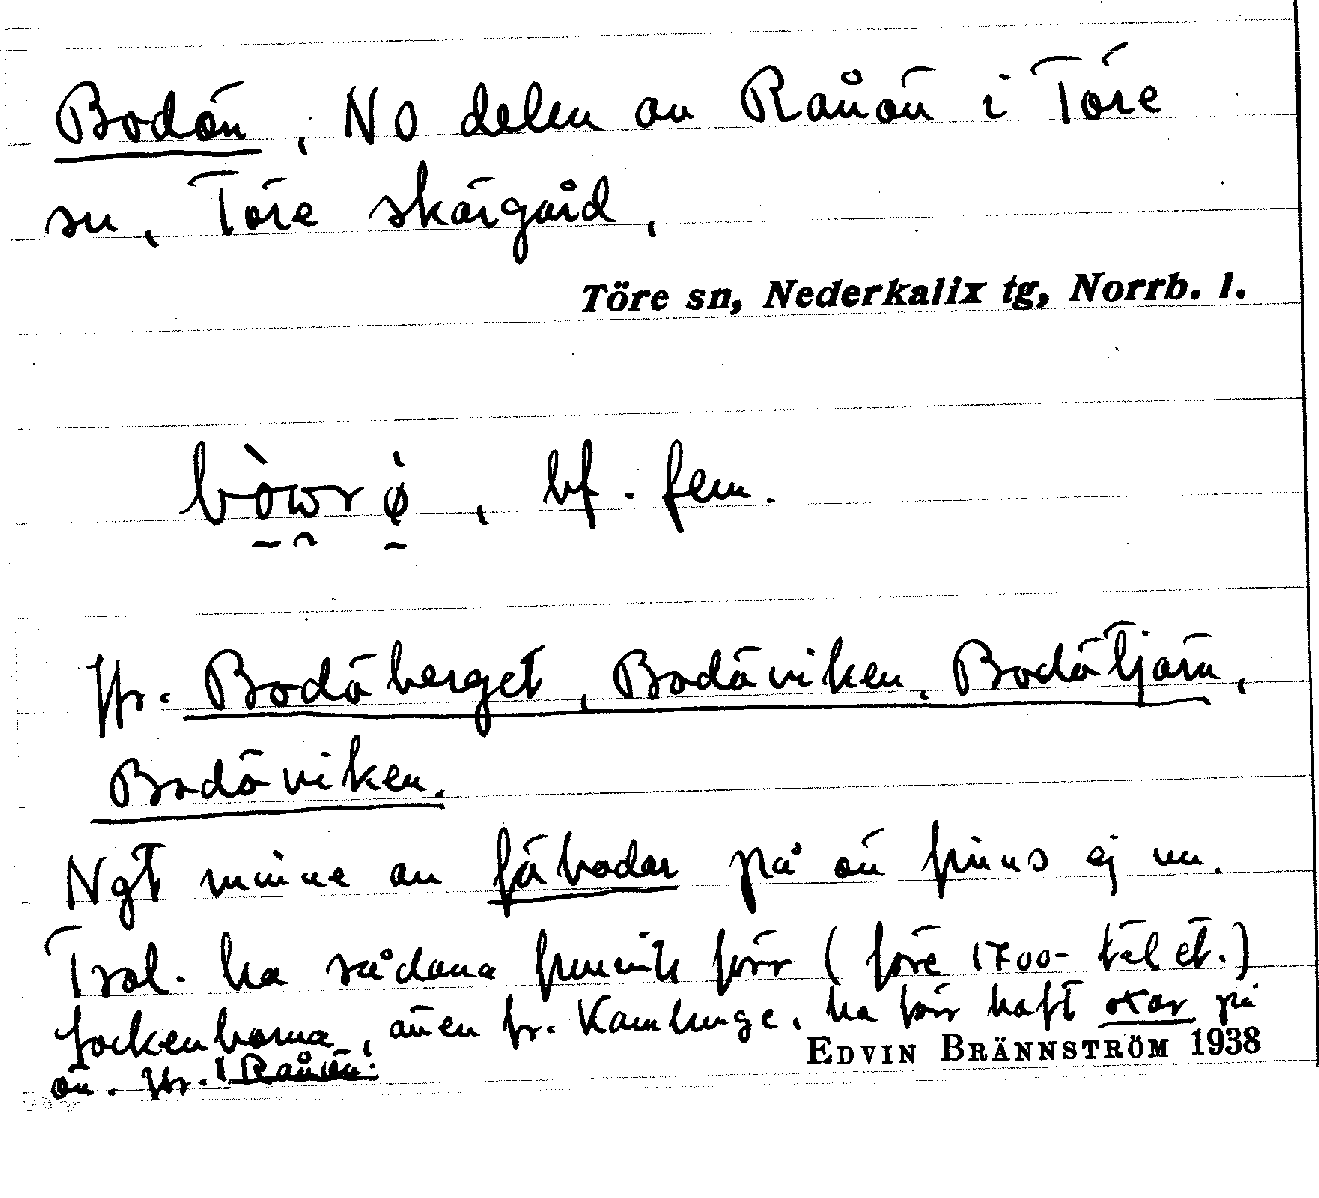 Bodön, NO delen av Rånön i Töre
sn, Töre skärgård,
Töre sn, Nederkalix tg, Norrb. l.
bòwrø̀, bf. fem.
Jfr. Bodöberget, Bodöviken, Bodötjärn,
Bodöviken.
Ngt minne av fäbodar på ön finns ej nu.
Trol. ha sådana funnits förr (före 1700-talet.)
Sockenborna, även fr. Kamlunge, ha förr haft oxar på
ön. Jfr. Rånön.
EDVIN BRÄNNSTRÖM 1938